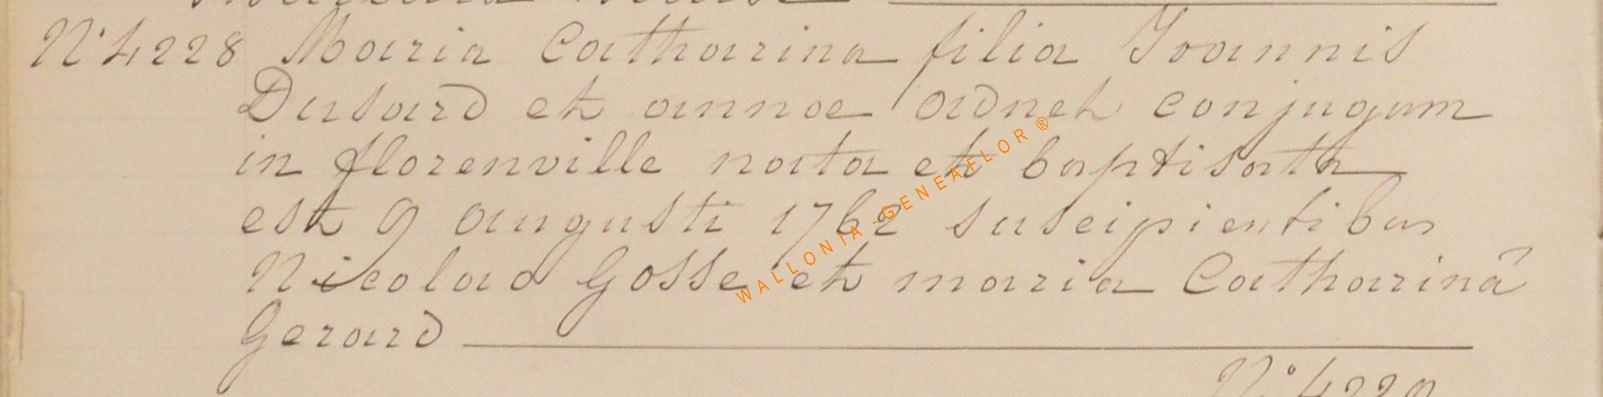 N° 4228 Maria Catharina filia Joannis
Dusard et annae Adnet conjugum
in florenville nata et baptisata
est 9 augusti 1762 suscipientibus
Nicolao Gosse et maria Catharinâ
Gerard
N° 4229
WALLONIA-GENEAFLOR ®